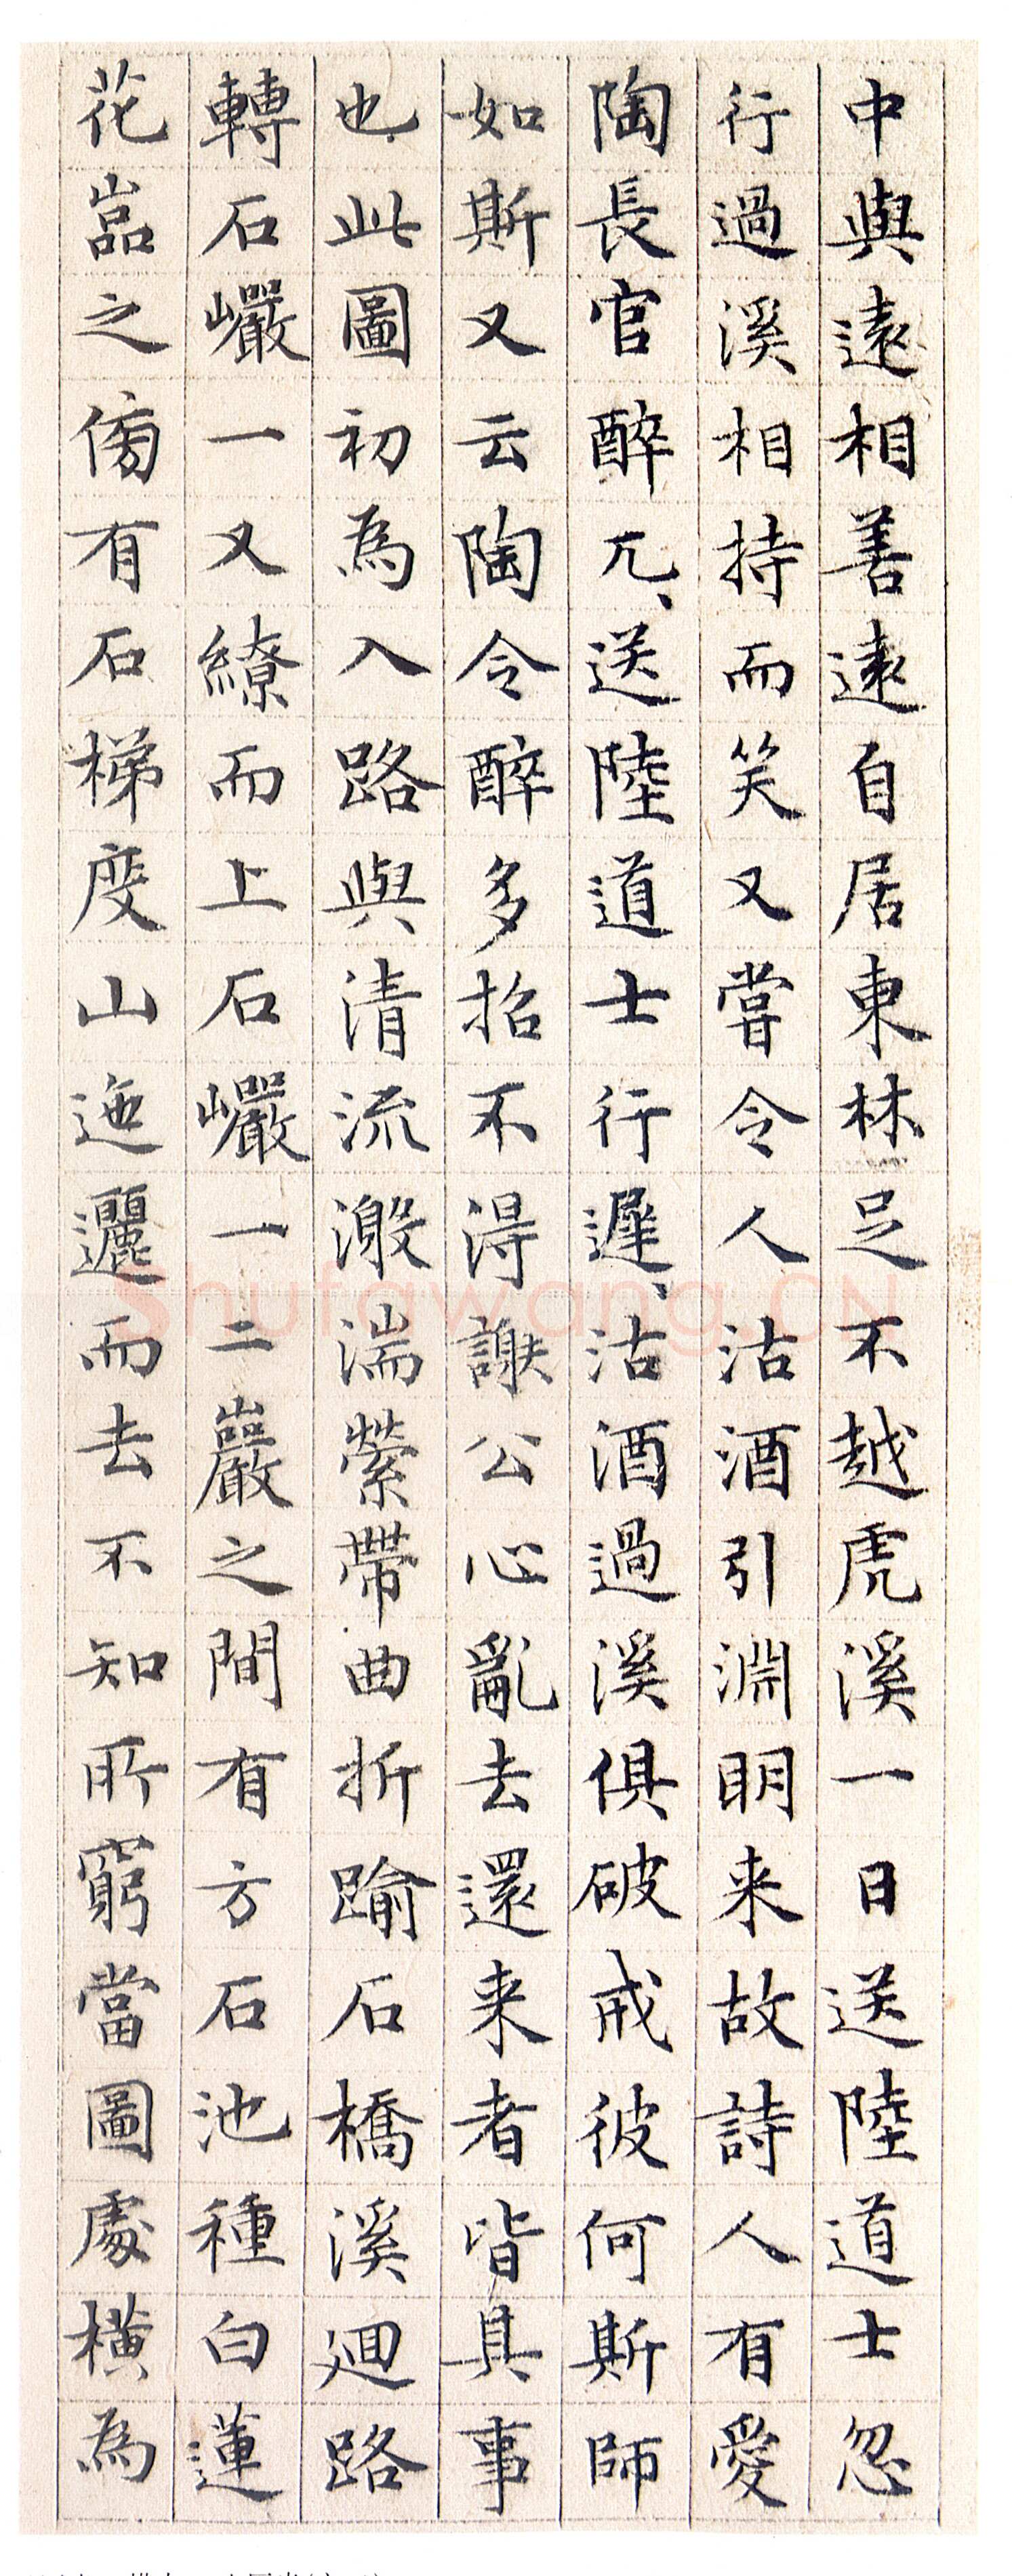 中與遠相善遠自居東林足不越虎溪一日送陸道士忽
行過溪相持而笑又嘗令人沽酒引淵明来故詩人有愛
陶長官醉兀、送陸道士行遲、沽酒過溪俱破戒彼何斯師
如斯又云陶令醉多招不得謝公心亂去還来者皆具事
也此圖初為入路與清流激湍縈帶曲折踰石橋溪迴路
轉石巘一又繚而上石巘一二巖之間有方石池種白蓮
花嵓之傍有石梯度山迤邐而去不知所窮當圖處橫為
Shufawang.CN